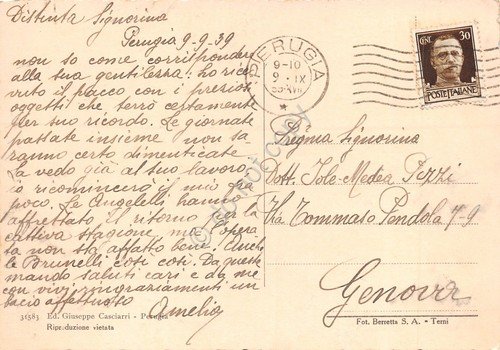 Distinta Signorina
Perugia 9-9-39
non so come corrispondere
alla sua gentilezza: ho rice
vuto il pacco con i preziosi
oggetti che terrò certamente
per suo ricordo. Le giornate
passate insieme non sa-
ranno certo dimenticate
La vedo già al suo lavoro
io ricomincerò il mio fra
poco. Le hanno
affrettato il ritorno per la
cattiva stagione, ma l'opera
ta non sta affatto bene. Anche
le Brunelli così così. Da queste
mando saluti cari e da me
con vivi ringraziamenti un
bacio affettuoso
Amelia
31583 Ed. Giuseppe Casciarri - Perugia
Riproduzione vietata
PERUGIA
9-10
9 IX
CENT 30
POSTE ITALIANE
Pregma Signorina
Dott. Medea Pezzi
Via Tommaso Pendola 7-9
Genova
Fot. Berretta S. A. - Terni